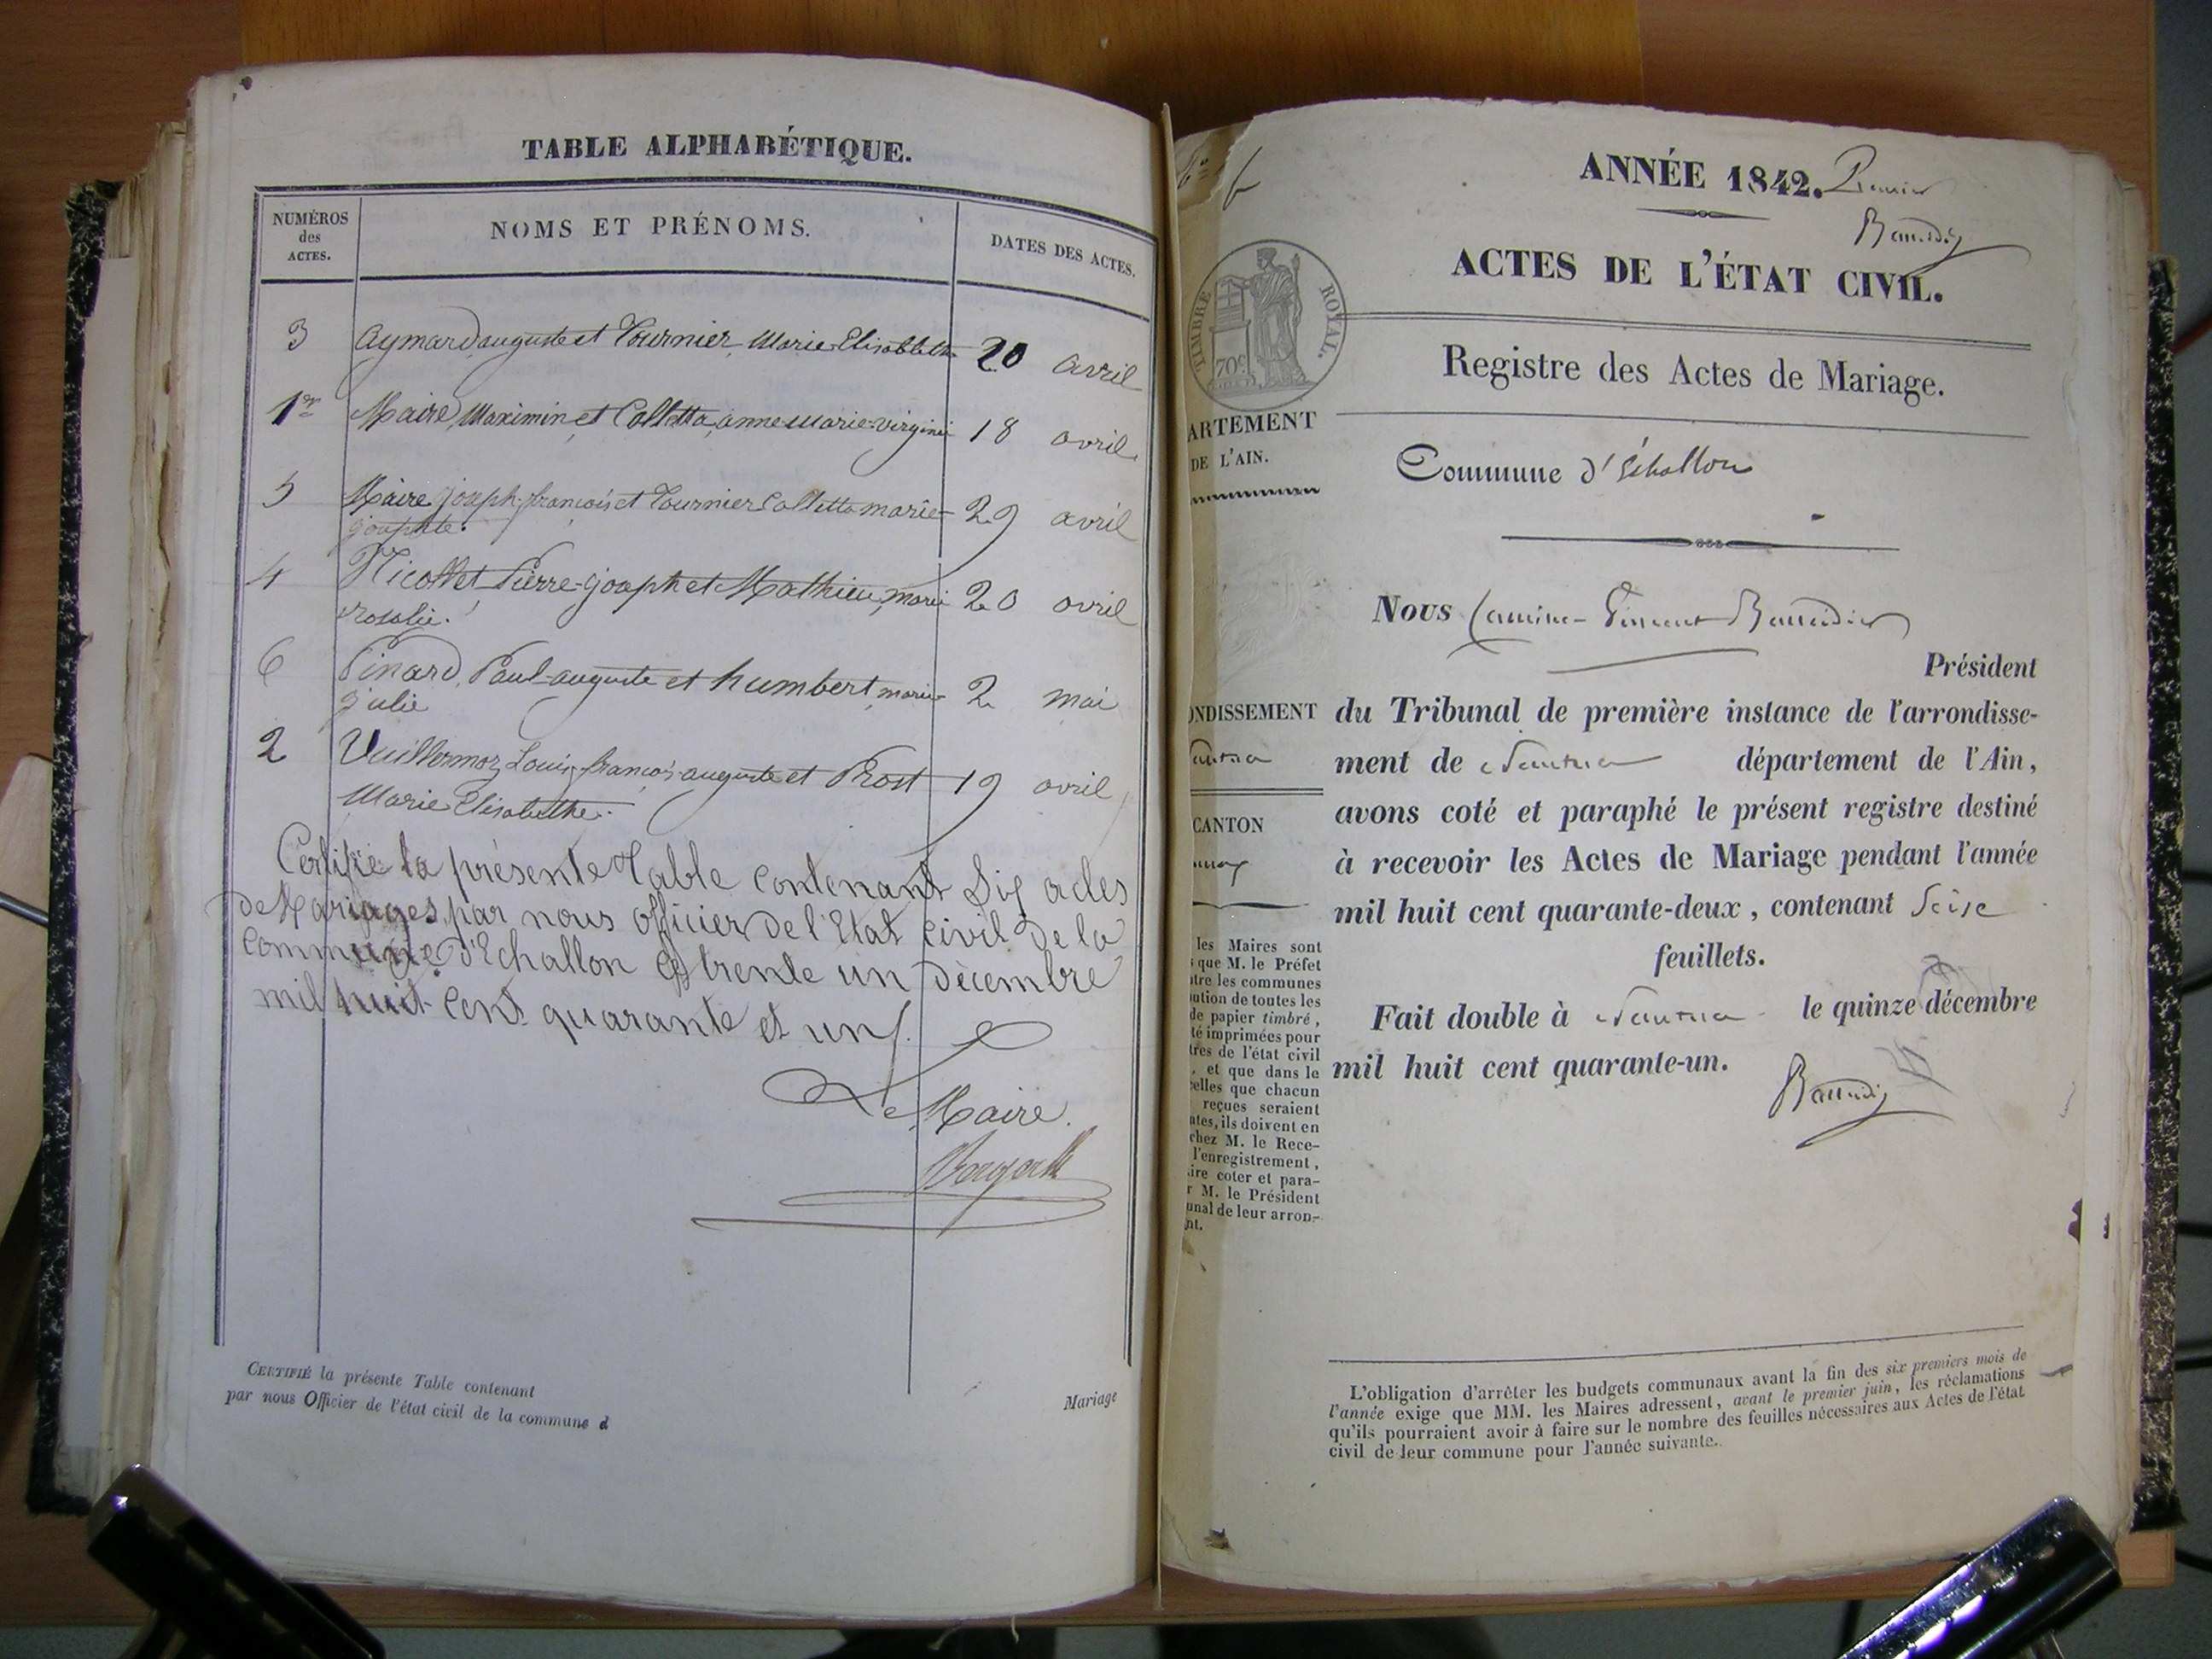 TABLE ALPHABÉTIQUE.
NUMÉROS
des
ACTES.
NOMS ET PRÉNOMS.
DATES DES ACTES.
3 Aymard, auguste et Tournier, Marie-Elisabethe 20 avril
1er Maire, Maximin et Colletta, anne-marie-virginie 18 avril.
5 Maire joseph-françois et Tournier Colletta marie- 29 avril
josephte.
4 Nicollet Pierre-joseph et Mathieu, marie 20 avril
rosalie.
6 Pinard, Paul-auguste et humbert, marie 2 mai
julie
2 Vuillermoz, Louis-françois-auguste et Prost 19 avril
Marie Elisabethe.
Certifié la présente Table contenant Six actes
de Mariages, par nous officier de l'Etat civil de la
Commune d'Echallon ce trente un décembre
mil huit-cent quarante et un.
Le Maire.
CERTIFIÉ la présente Table contenant
par nous Officier de l'état civil de la commune d
Mariage
ANNÉE 1842. Premier
ACTES DE L'ÉTAT CIVIL.
TIMBRE ROYAL.
70c
Registre des Actes de Mariage.
ARTEMENT
DE L'AIN.
Commune d'Échallon
Nous
Président
ONDISSEMENT
du Tribunal de première instance de l'arrondisse-
ment de Nantua département de l'Ain,
avons coté et paraphé le présent registre destiné
CANTON
à recevoir les Actes de Mariage pendant l'année
mil huit cent quarante-deux, contenant Seize
feuillets.
Fait double à Nantua le quinze décembre
mil huit cent quarante-un.
les Maires sont
que M. le Préfet
tre les communes
ution de toutes les
de papier timbré,
té imprimées pour
tres de l'état civil
, et que dans le
celles que chacun
reçues seraient
ntes, ils doivent en
chez M. le Rece-
l'enregistrement,
ire coter et para-
r M. le Président
unal de leur arron-
nt.
L'obligation d'arrêter les budgets communaux avant la fin des six premiers mois de
l'année exige que MM. les Maires adressent, avant le premier juin, les réclamations
qu'ils pourraient avoir à faire sur le nombre des feuilles nécessaires aux Actes de l'état
civil de leur commune pour l'année suivante.